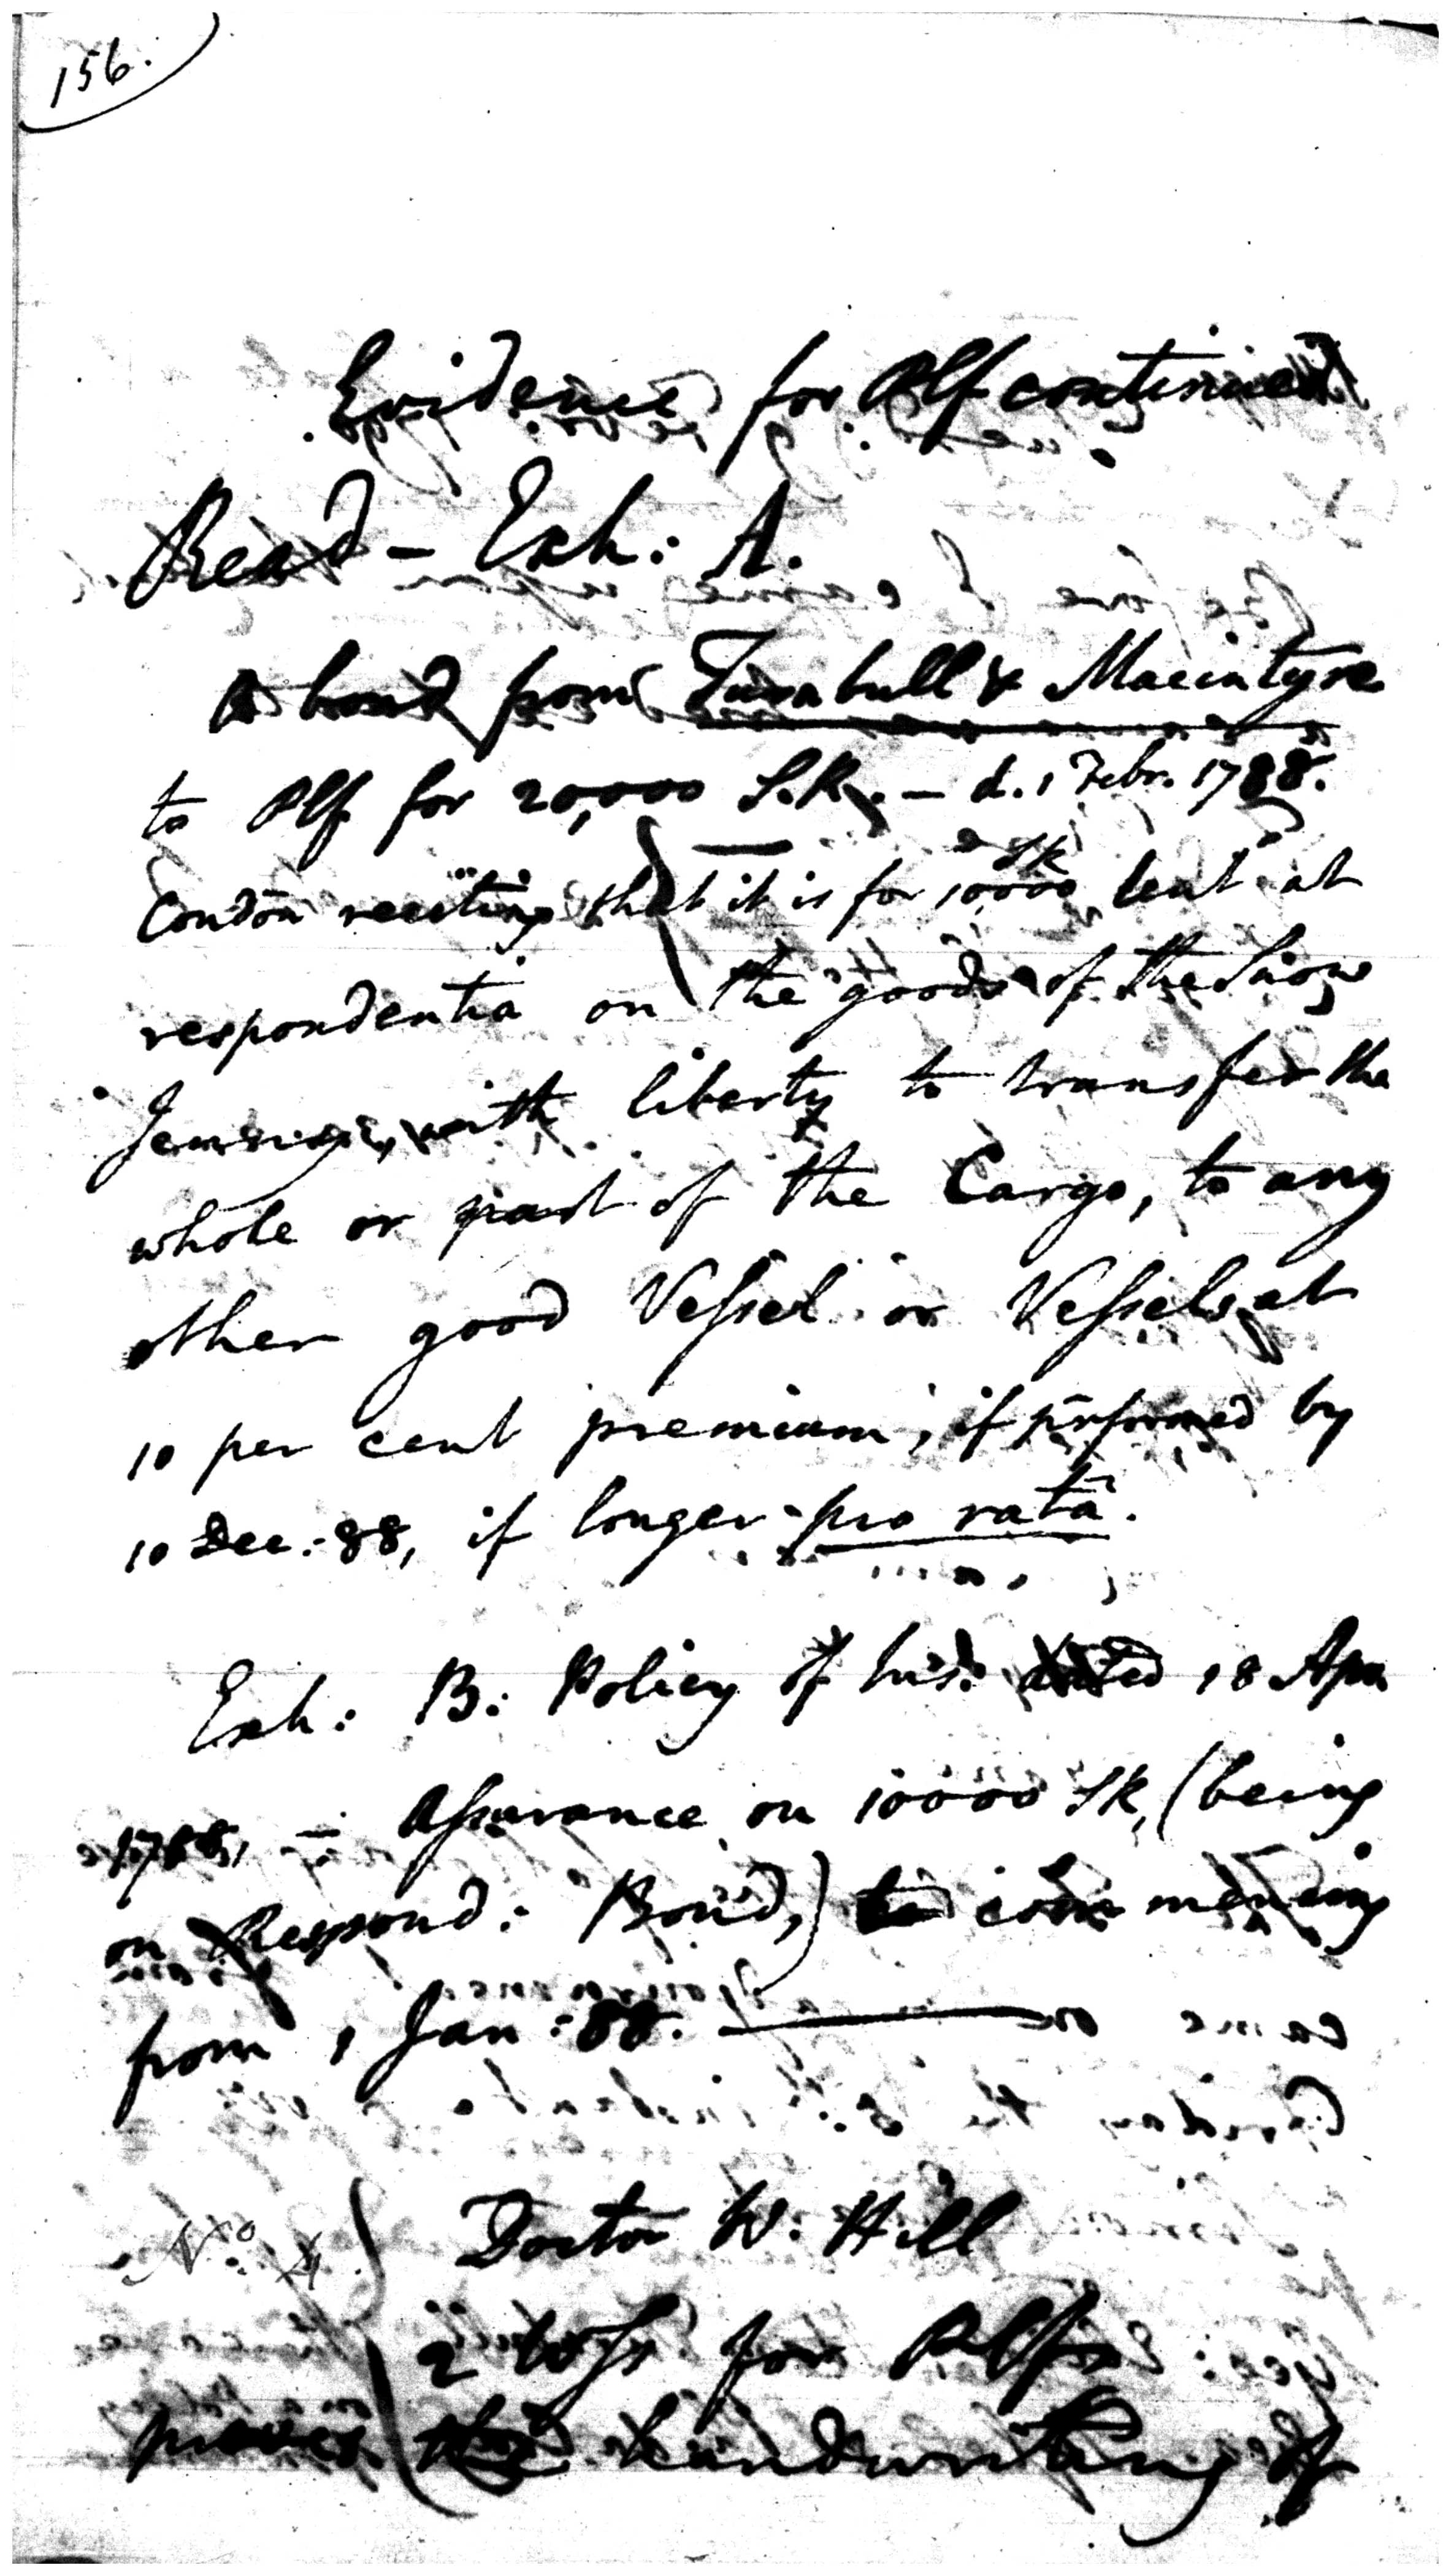 156.
Evidence for Plf continued
Read – Exh: A.
A bond from Turnbull & Macintyre
to Plf for 20,000 S.R. – d. 1 Febr. 1788.
Condōn reciting that it is for 10,000 SR lent at
respondentia on the goods of the Snow
Jemsey, with liberty to transfer the
whole or part of the Cargo, to any
other good Vessel or Vessels, at
10 per cent premium, if performed by
10 Dec: 88, if longer pro ratâ.
Exh: B: Policy of Ins: dated 18 Apr
1788, – Assurance on 10000 SR, (being
on Respond: Bond,) commencing
from 1 Jan: 88.
No. 4.
Doctor W. Hill
2 Wss for Plf
proves the handwriting of